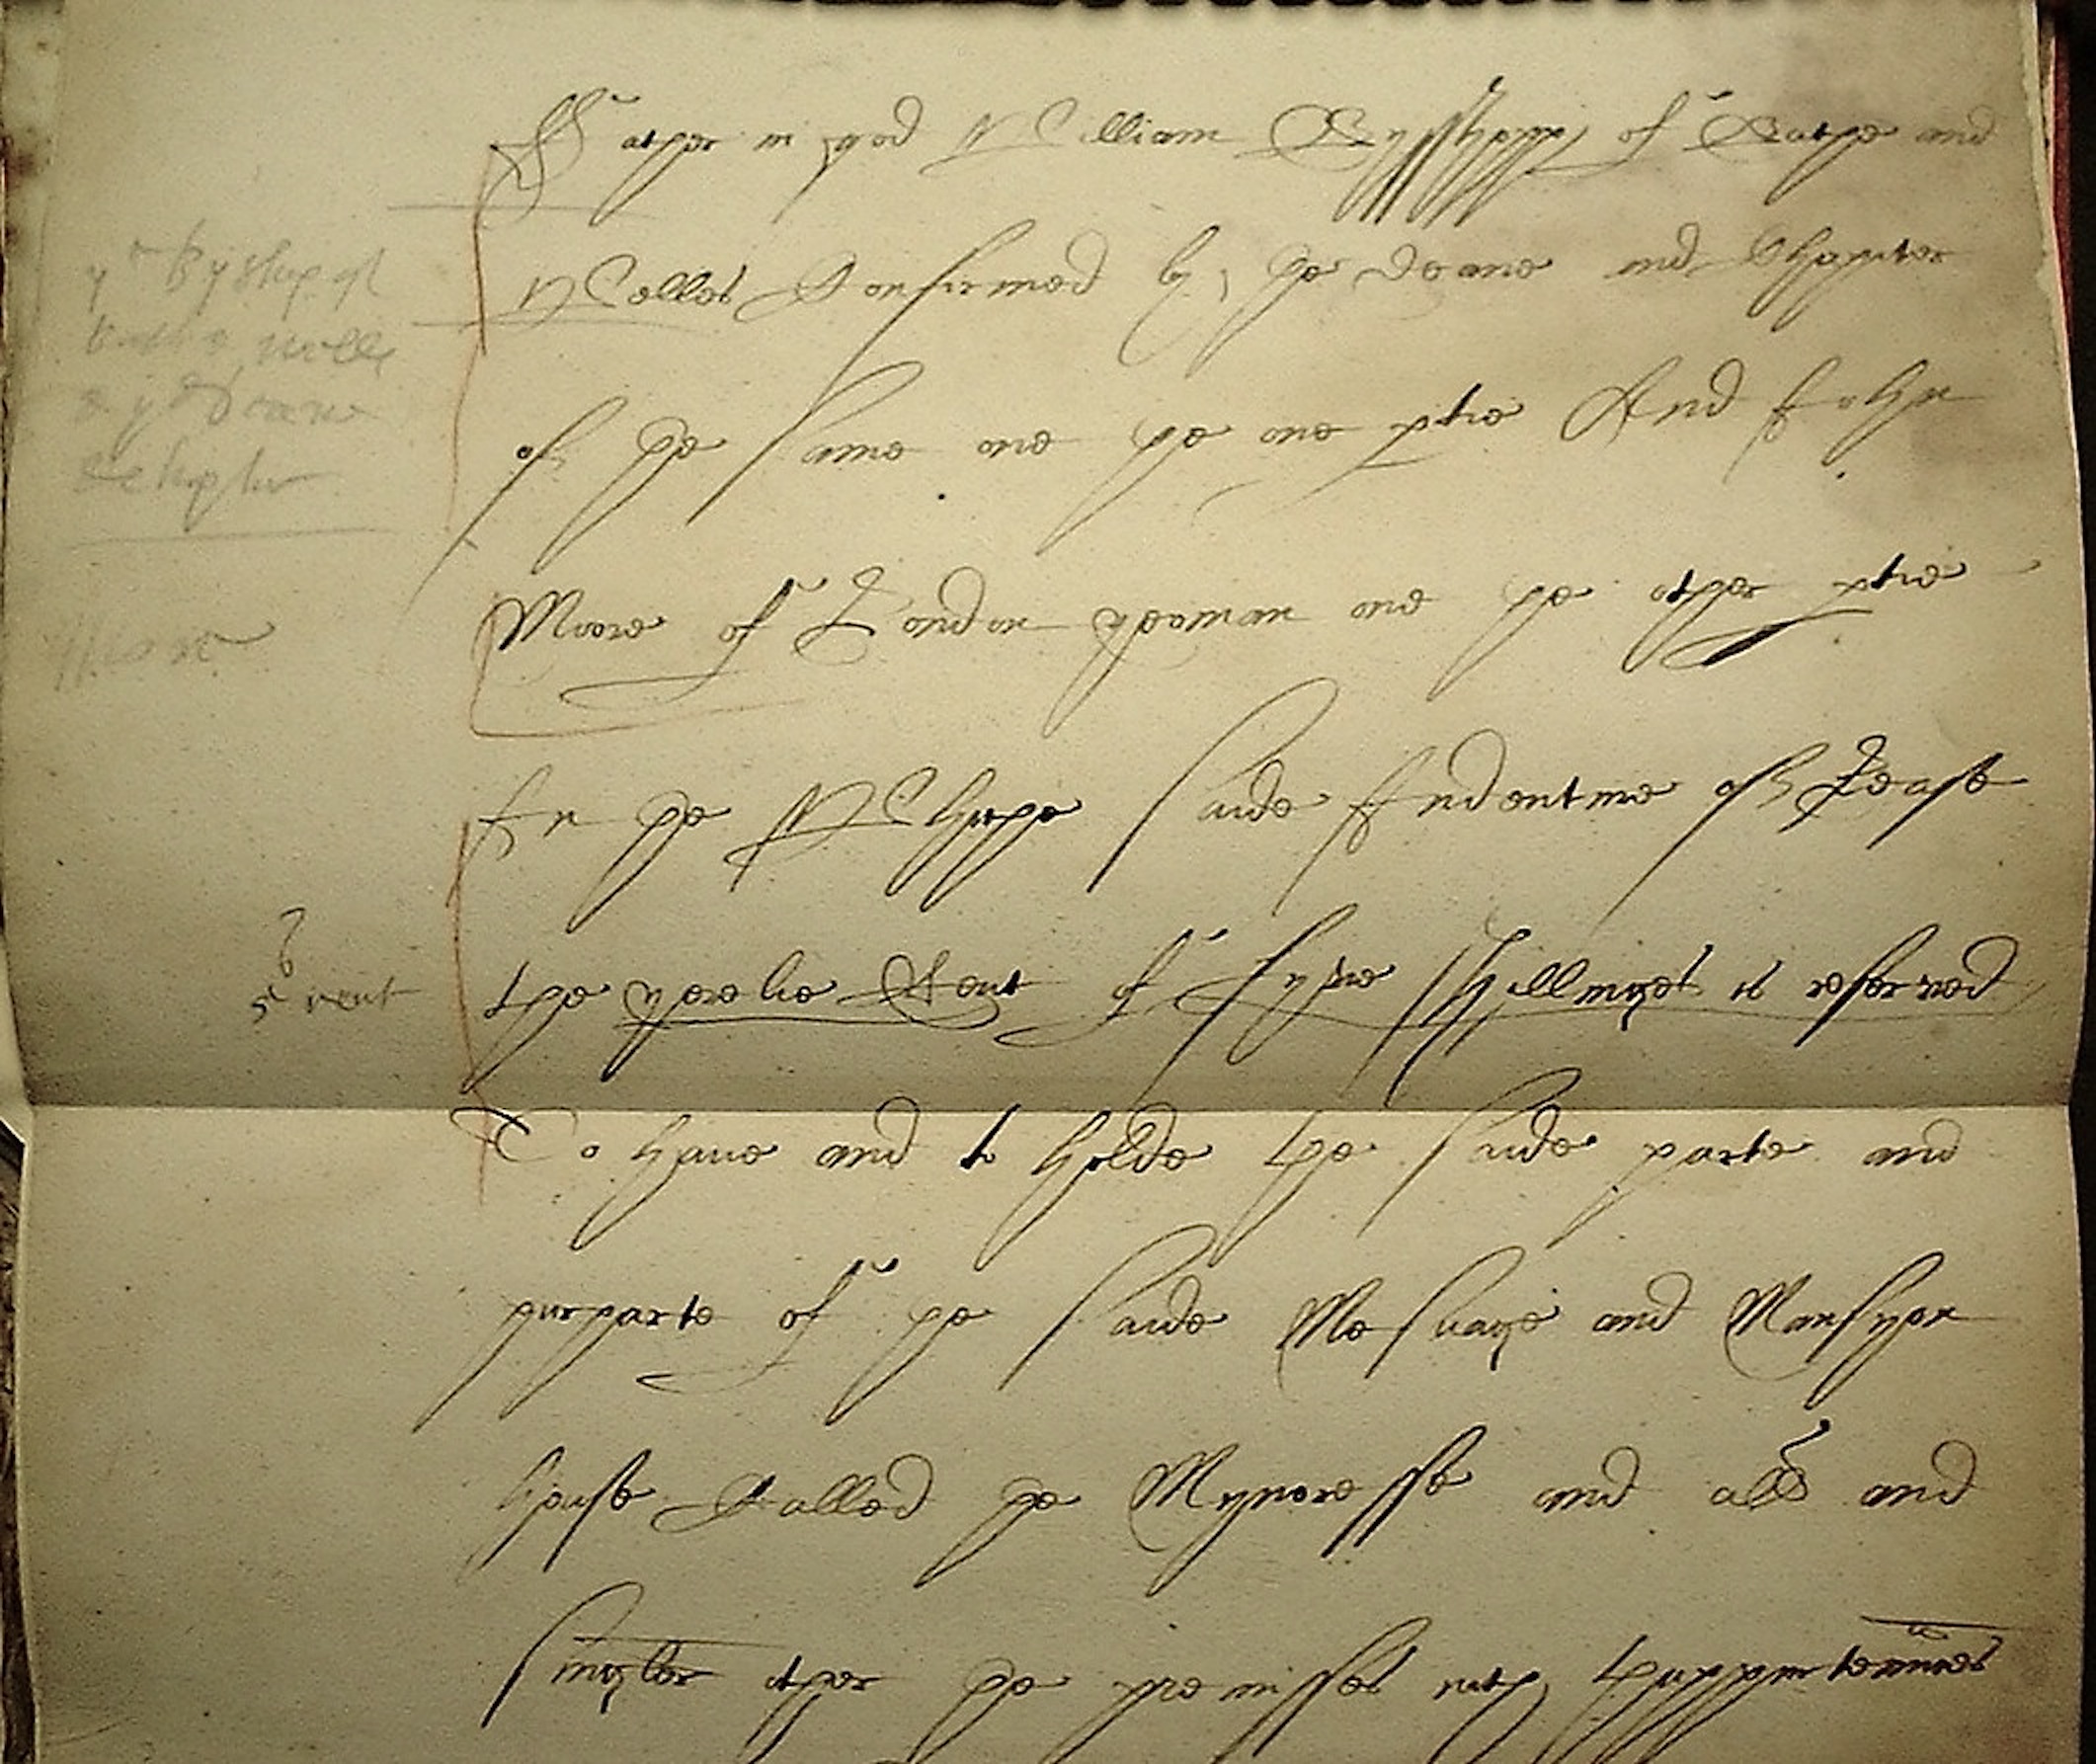 Father in god William Bysshopp of Bathe and
Welles Confirmed by the Deane and Chapiter
of the same one the one ptie And John
Moore of London yeoman one the other ptie
In the Whiche saide Indenture of Lease
the yerelie Rent of fyve shillinges is reserved
To haue and to holde the saide parte and
purparte of the saide Mesuage and Mansyon
house Called the Mynoresse and all and
singler other the premisses with thappurtenances
ye Byshop of
bath & welles
& ye Deane
& Chapter
Moore
5s rent